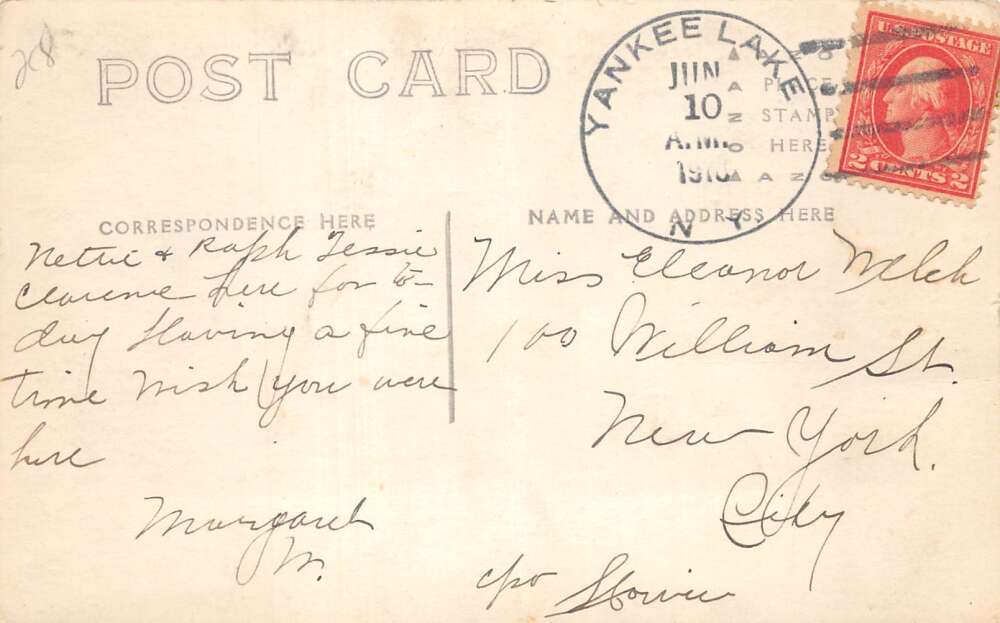 28
POST CARD
YANKEE LAKE
JUN
10
A.M.
N.Y.
PLACE
STAMP
HERE
U.S. POSTAGE
2 CENTS 2
CORRESPONDENCE HERE
NAME AND ADDRESS HERE
Nettie & Ralph Jessie
Clarence here for to-
day Having a fine
time Wish you were
here
Margaret
M.
Miss Eleanor Welch
100 William St.
New York.
City
c/o